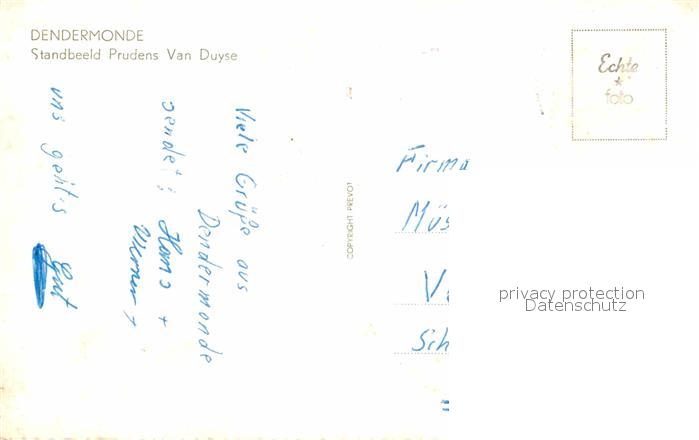 DENDERMONDE
Standbeeld Prudens Van Duyse
Viele Grüße aus
Dendermonde
sendet; Hans +
Werner +
uns geht's Gut
COPYRIGHT PREVOT
Echte
foto
Firma
Müs
Vi
Sch
privacy protection
Datenschutz